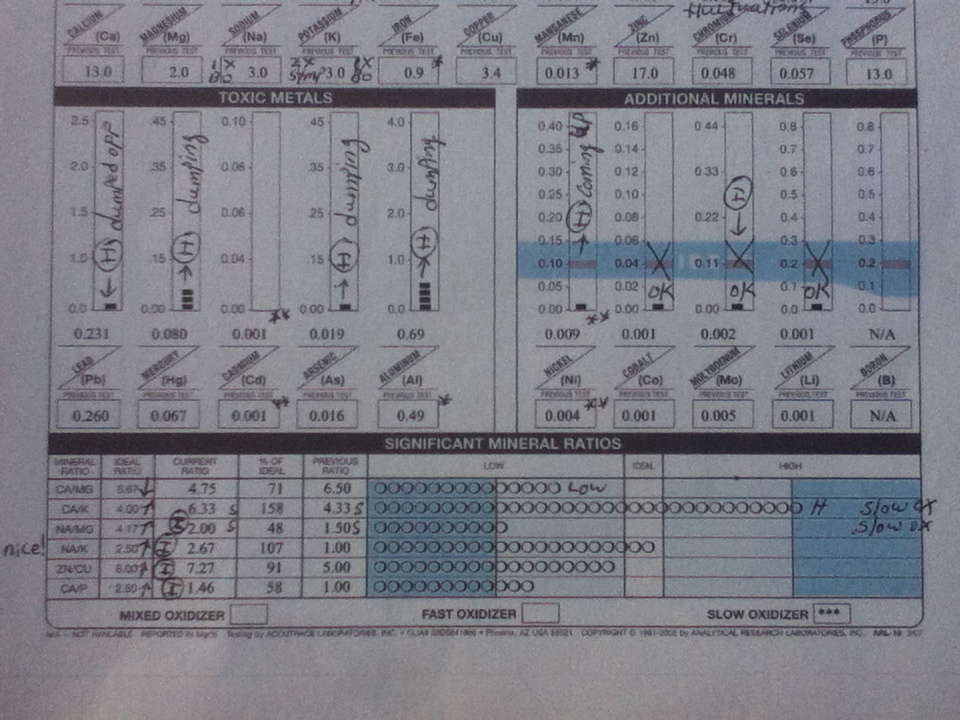 fluctuations 13.0
CALCIUM (Ca) MAGNESIUM (Mg) SODIUM (Na) POTASSIUM (K) IRON (Fe) COPPER (Cu) MANGANESE (Mn) ZINC (Zn) CHROMIUM (Cr) SELENIUM (Se) PHOSPHORUS (P)
PREVIOUS TEST PREVIOUS TEST PREVIOUS TEST PREVIOUS TEST PREVIOUS TEST PREVIOUS TEST PREVIOUS TEST PREVIOUS TEST PREVIOUS TEST PREVIOUS TEST PREVIOUS TEST
13.0 2.0 3.0 3.0 0.9 * 3.4 0.013 * 17.0 0.048 0.057 13.0
TOXIC METALS ADDITIONAL MINERALS
2.5 .45 0.10 .45 4.0 0.40 0.16 0.44 0.8 0.8
0.35 0.14 0.7 0.7
2.0 .35 0.08 .35 3.0 0.30 0.12 0.33 0.6 0.6
0.25 0.10 0.5 0.5
1.5 .25 0.06 .25 2.0 0.20 0.08 0.22 0.4 0.4
0.15 0.06 0.3 0.3
1.0 .15 0.04 .15 1.0 0.10 0.04 0.11 0.2 0.2
0.05 0.02 0.1 0.1
0.0 0.00 0.00 0.0 0.0 0.00 0.00 0.00 0.0 0.0
(H) dumped opp
(H) dumping
(H) dumping
(H) dumping
(H) coming up
(H)
OK OK OK
0.231 0.080 0.001 ** 0.019 0.69 0.009 ** 0.001 0.002 0.001 N/A
LEAD (Pb) MERCURY (Hg) CADMIUM (Cd) ARSENIC (As) ALUMINUM (Al) NICKEL (Ni) COBALT (Co) MOLYBDENUM (Mo) LITHIUM (Li) BORON (B)
PREVIOUS TEST PREVIOUS TEST PREVIOUS TEST PREVIOUS TEST PREVIOUS TEST PREVIOUS TEST PREVIOUS TEST PREVIOUS TEST PREVIOUS TEST PREVIOUS TEST
0.260 0.067 0.001 ** 0.016 0.49 * 0.004 ** 0.001 0.005 0.001 N/A
SIGNIFICANT MINERAL RATIOS
MINERAL RATIO IDEAL RATIO CURRENT RATIO % OF IDEAL PREVIOUS RATIO LOW IDEAL HIGH
CA/MG 6.67 4.75 71 6.50 LOW
CA/K 4.00 6.33 S 158 4.33 S H Slow OX
NA/MG 4.17 I 2.00 S 48 1.50 S Slow OX
nice! NA/K 2.50 I 2.67 107 1.00
ZN/CU 8.00 I 7.27 91 5.00
CA/P 2.50 I 1.46 58 1.00
MIXED OXIDIZER FAST OXIDIZER SLOW OXIDIZER ***
N/A -- NOT AVAILABLE REPORTED IN Mg% Testing by ACCUTRACE LABORATORIES, INC. Phoenix, AZ USA COPYRIGHT © BY ANALYTICAL RESEARCH LABORATORIES, INC. ARL-10